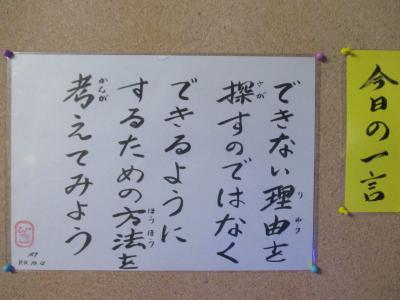 今日の一言
できない理由を
探すのではなく
できるように
するための方法を
考えてみよう
りゆう
さが
ほうほう
かんが